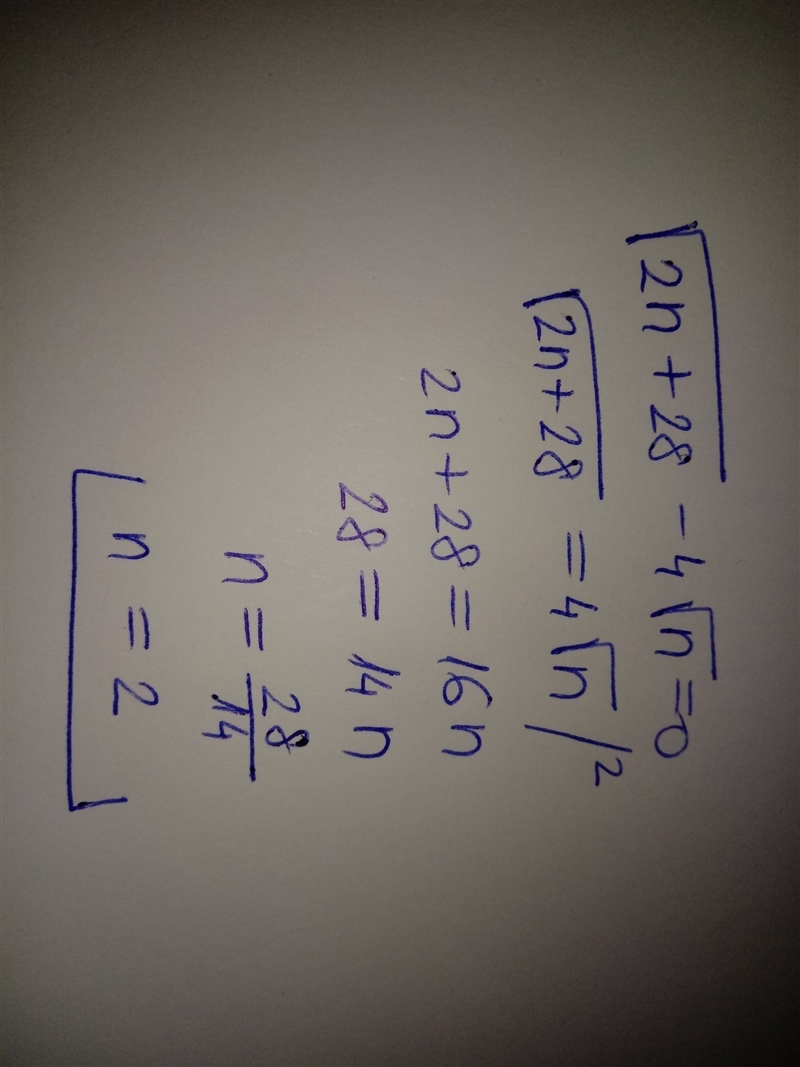 √2n+28 - 4√n = 0
√2n+28 = 4√n /²
2n+28 = 16n
28 = 14n
n = 28/14
n = 2